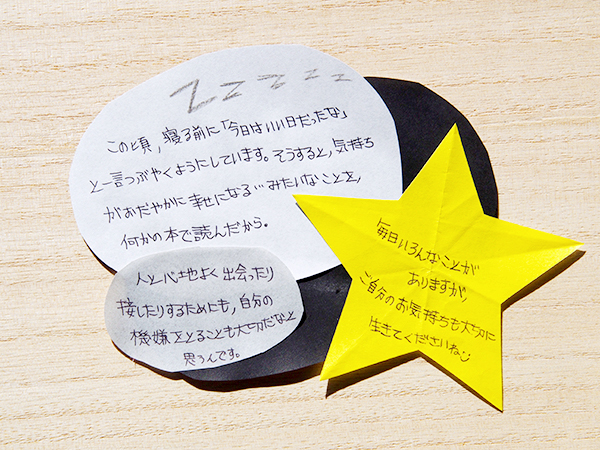 ZZZZZZ
このと頃,寝る前に「今日はいい日だったな」
と一言つぶやくようにしています。そうすると,気持ち
がおだやかに幸せになる…みたいなことを,
何かの本で読んだから。
人と心地よく出会ったり
接したりするためにも,自分の
機嫌をとることも大切だなと
思うんです。
毎日いろんなことが
ありますが,
ご自分のお気持ちも大切に
生きてくださいね